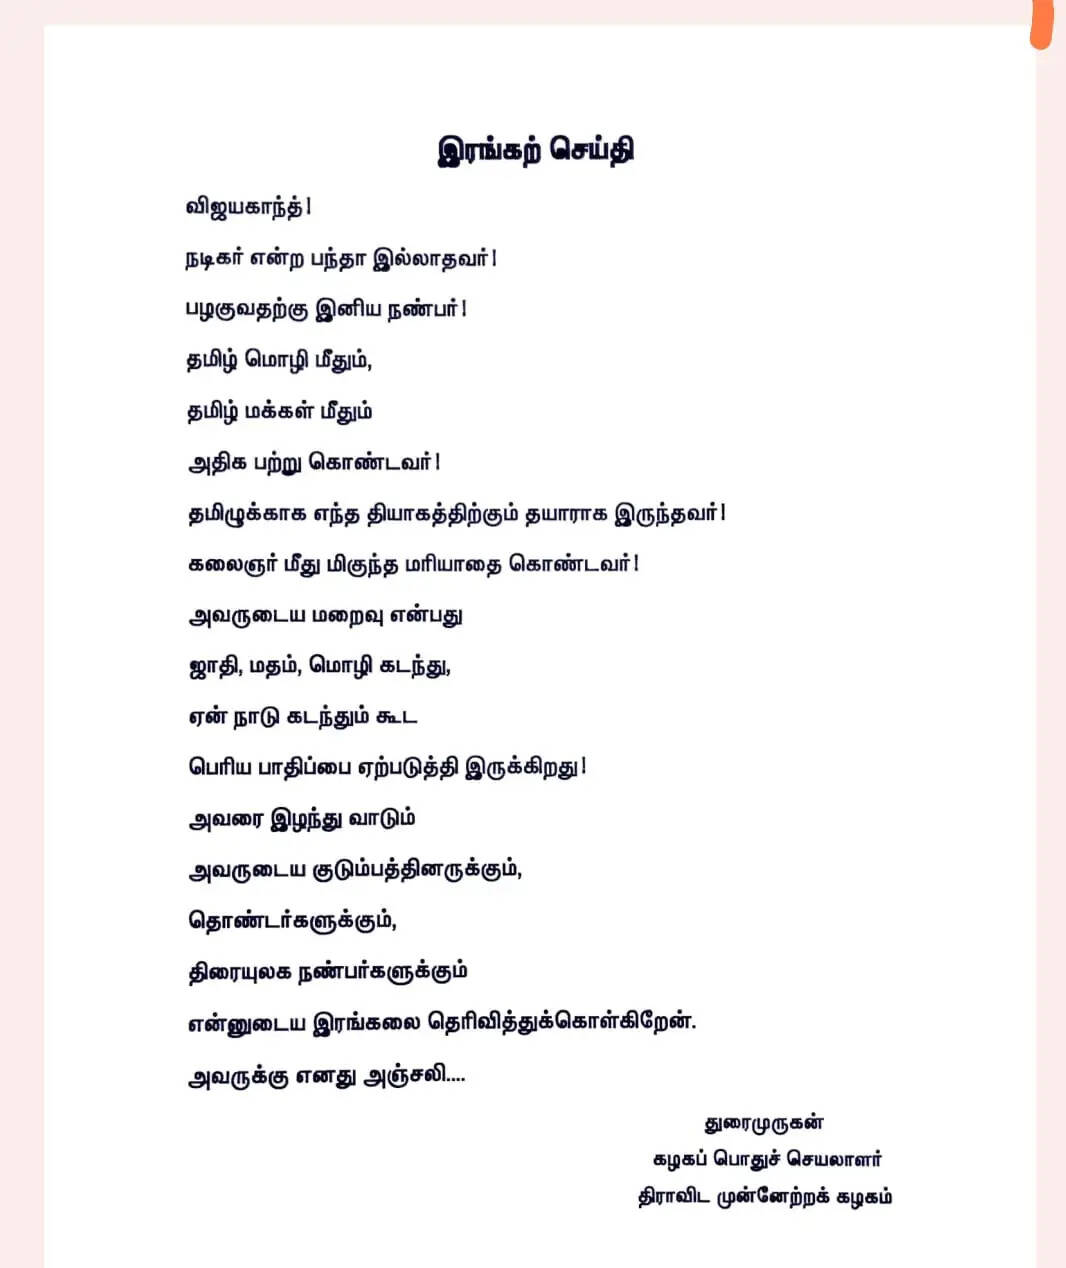 இரங்கற் செய்தி
விஜயகாந்த்!
நடிகர் என்ற பந்தா இல்லாதவர்!
பழகுவதற்கு இனிய நண்பர்!
தமிழ் மொழி மீதும்,
தமிழ் மக்கள் மீதும்
அதிக பற்று கொண்டவர்!
தமிழுக்காக எந்த தியாகத்திற்கும் தயாராக இருந்தவர்!
கலைஞர் மீது மிகுந்த மரியாதை கொண்டவர்!
அவருடைய மறைவு என்பது
ஜாதி, மதம், மொழி கடந்து,
ஏன் நாடு கடந்தும் கூட
பெரிய பாதிப்பை ஏற்படுத்தி இருக்கிறது!
அவரை இழந்து வாடும்
அவருடைய குடும்பத்தினருக்கும்,
தொண்டர்களுக்கும்,
திரையுலக நண்பர்களுக்கும்
என்னுடைய இரங்கலை தெரிவித்துக்கொள்கிறேன்.
அவருக்கு எனது அஞ்சலி....
துரைமுருகன்
கழகப் பொதுச் செயலாளர்
திராவிட முன்னேற்றக் கழகம்